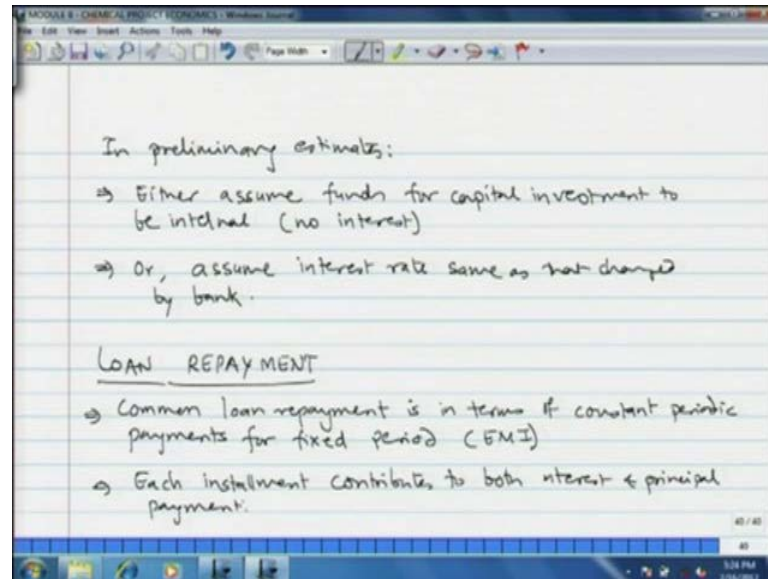 MODULE 8 - CHEMICAL PROJECT ECONOMICS - Windows Journal
File Edit View Insert Actions Tools Help
Page Width
In preliminary estimates:
⇒ Either assume funds for capital investment to
be internal (no interest)
⇒ Or, assume interest rate same as that charged
by bank.
LOAN REPAYMENT
⇒ Common loan repayment is in terms of constant periodic
payments for fixed period (EMI)
⇒ Each installment contributes to both interest & principal
payment.
40 / 40
40
5:24 PM